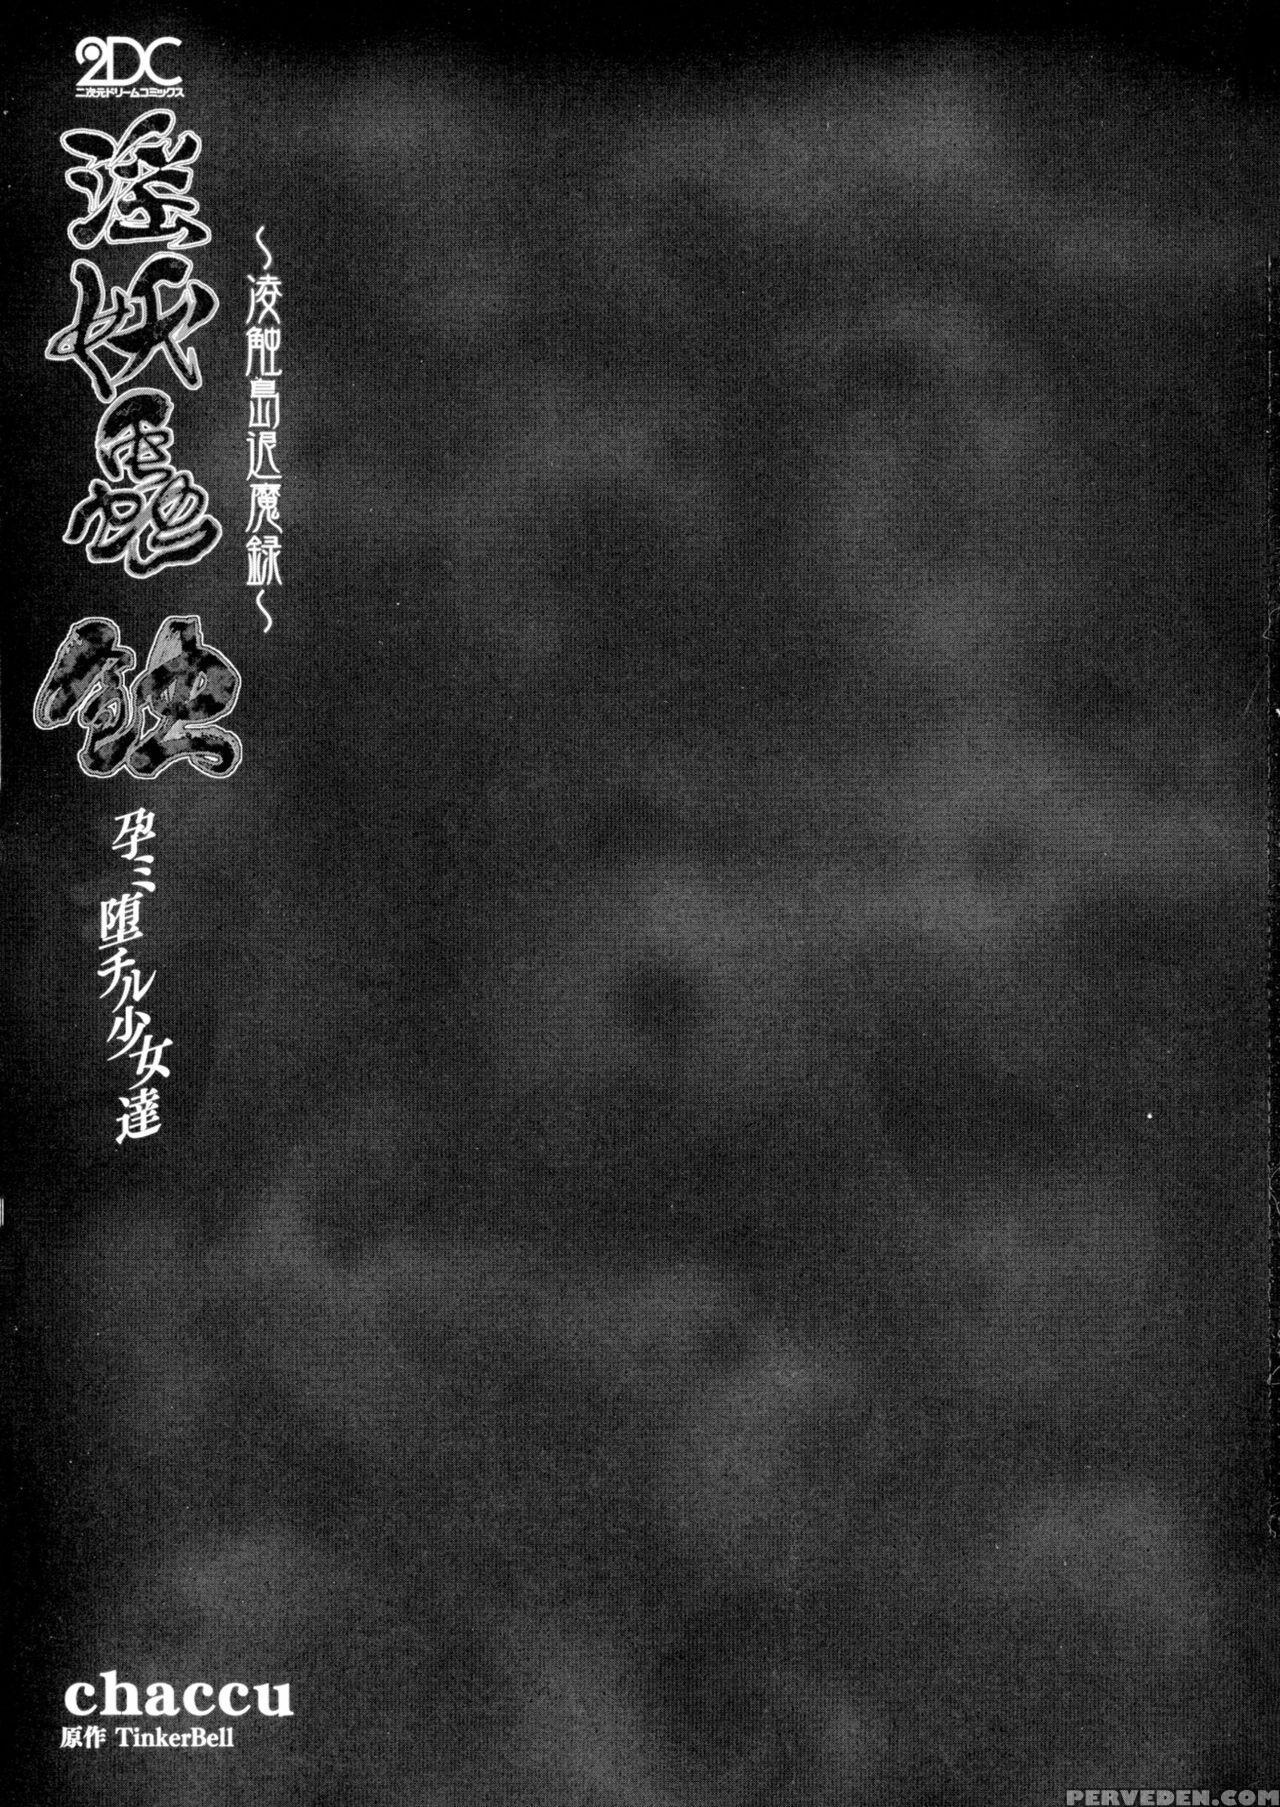 2DC
二次元ドリームコミックス
淫妖蟲 蝕
～凌触島退魔録～
孕ミ堕チル少女達
chaccu
原作 TinkerBell
PERVEDEN.COM